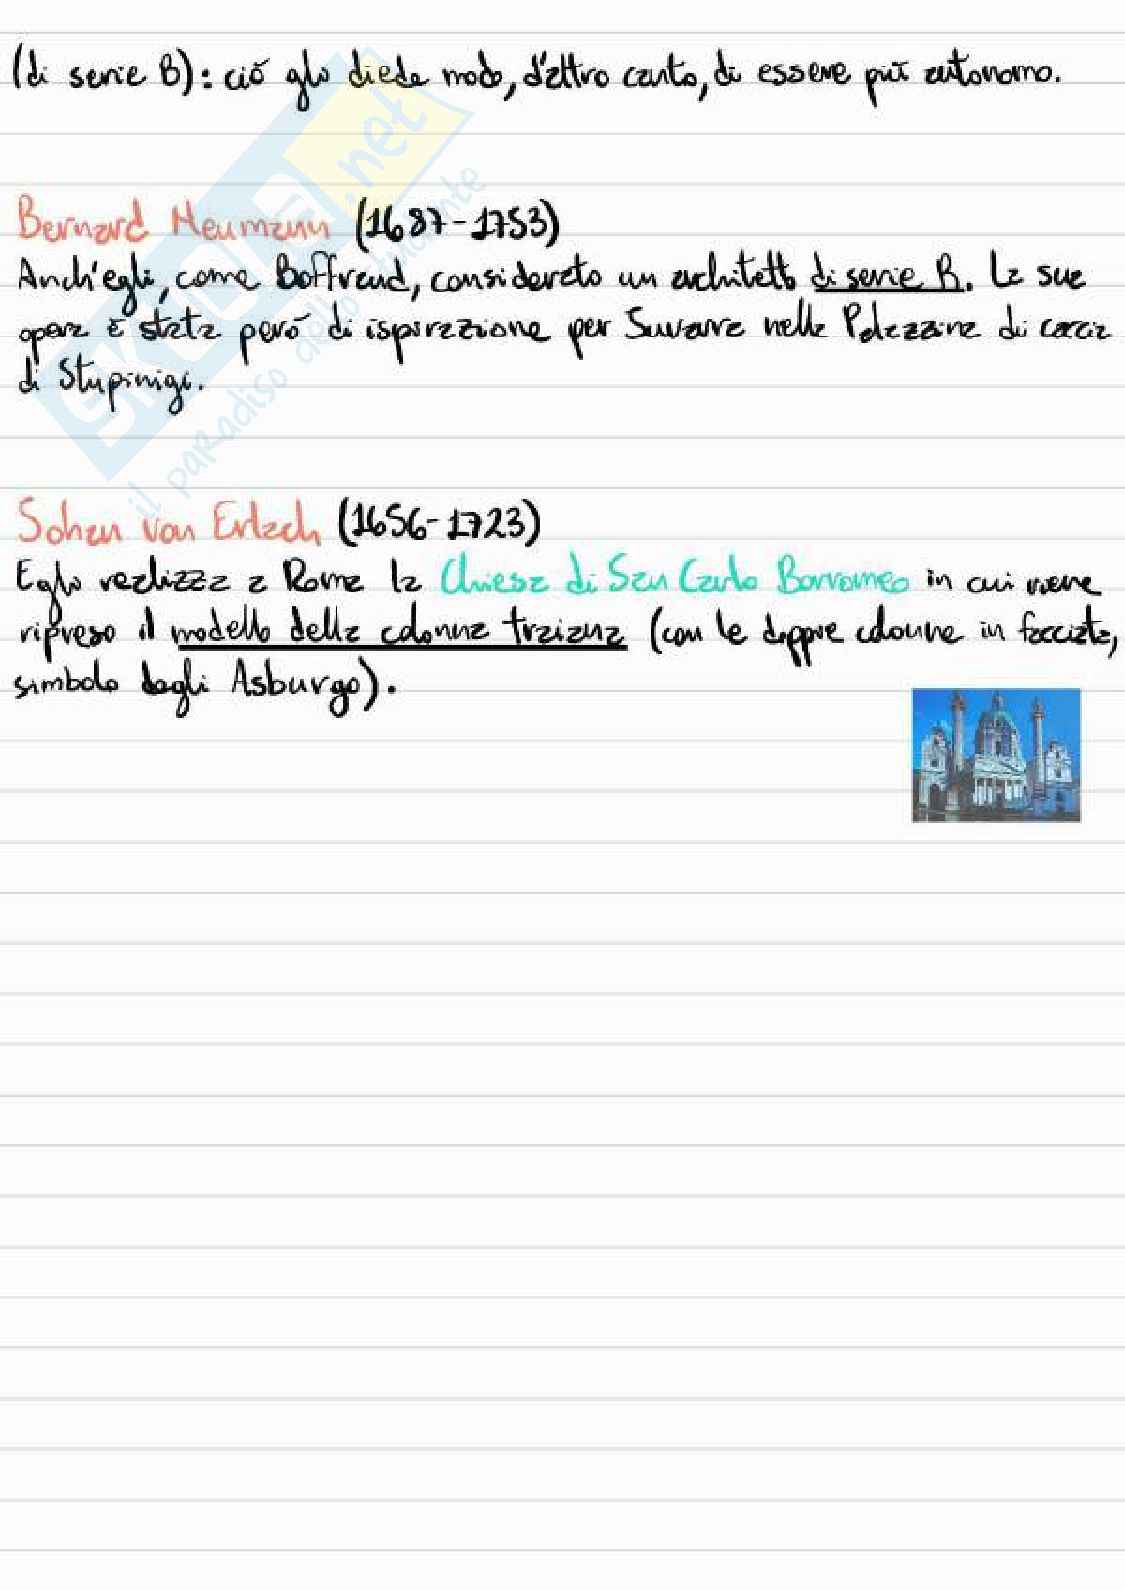 (di serie B): ciò glo diede modo, d'altro canto, di essere più autonomo.
Bernard Neumann (1687-1753)
Anch'egli, come Boffraud, considerato un architetto di serie B. La sua
opera è stata però di ispirazione per Juvarra nella Palazzina di caccia
di Stupinigi.
Johan von Erlach (1656-1723)
Eglo realizza a Roma la Chiesa di San Carlo Borromeo in cui viene
ripreso il modello della colonna traiana (con le doppie colonne in facciata,
simbolo degli Asburgo).
SKUOLA.net
il paradiso dello studente